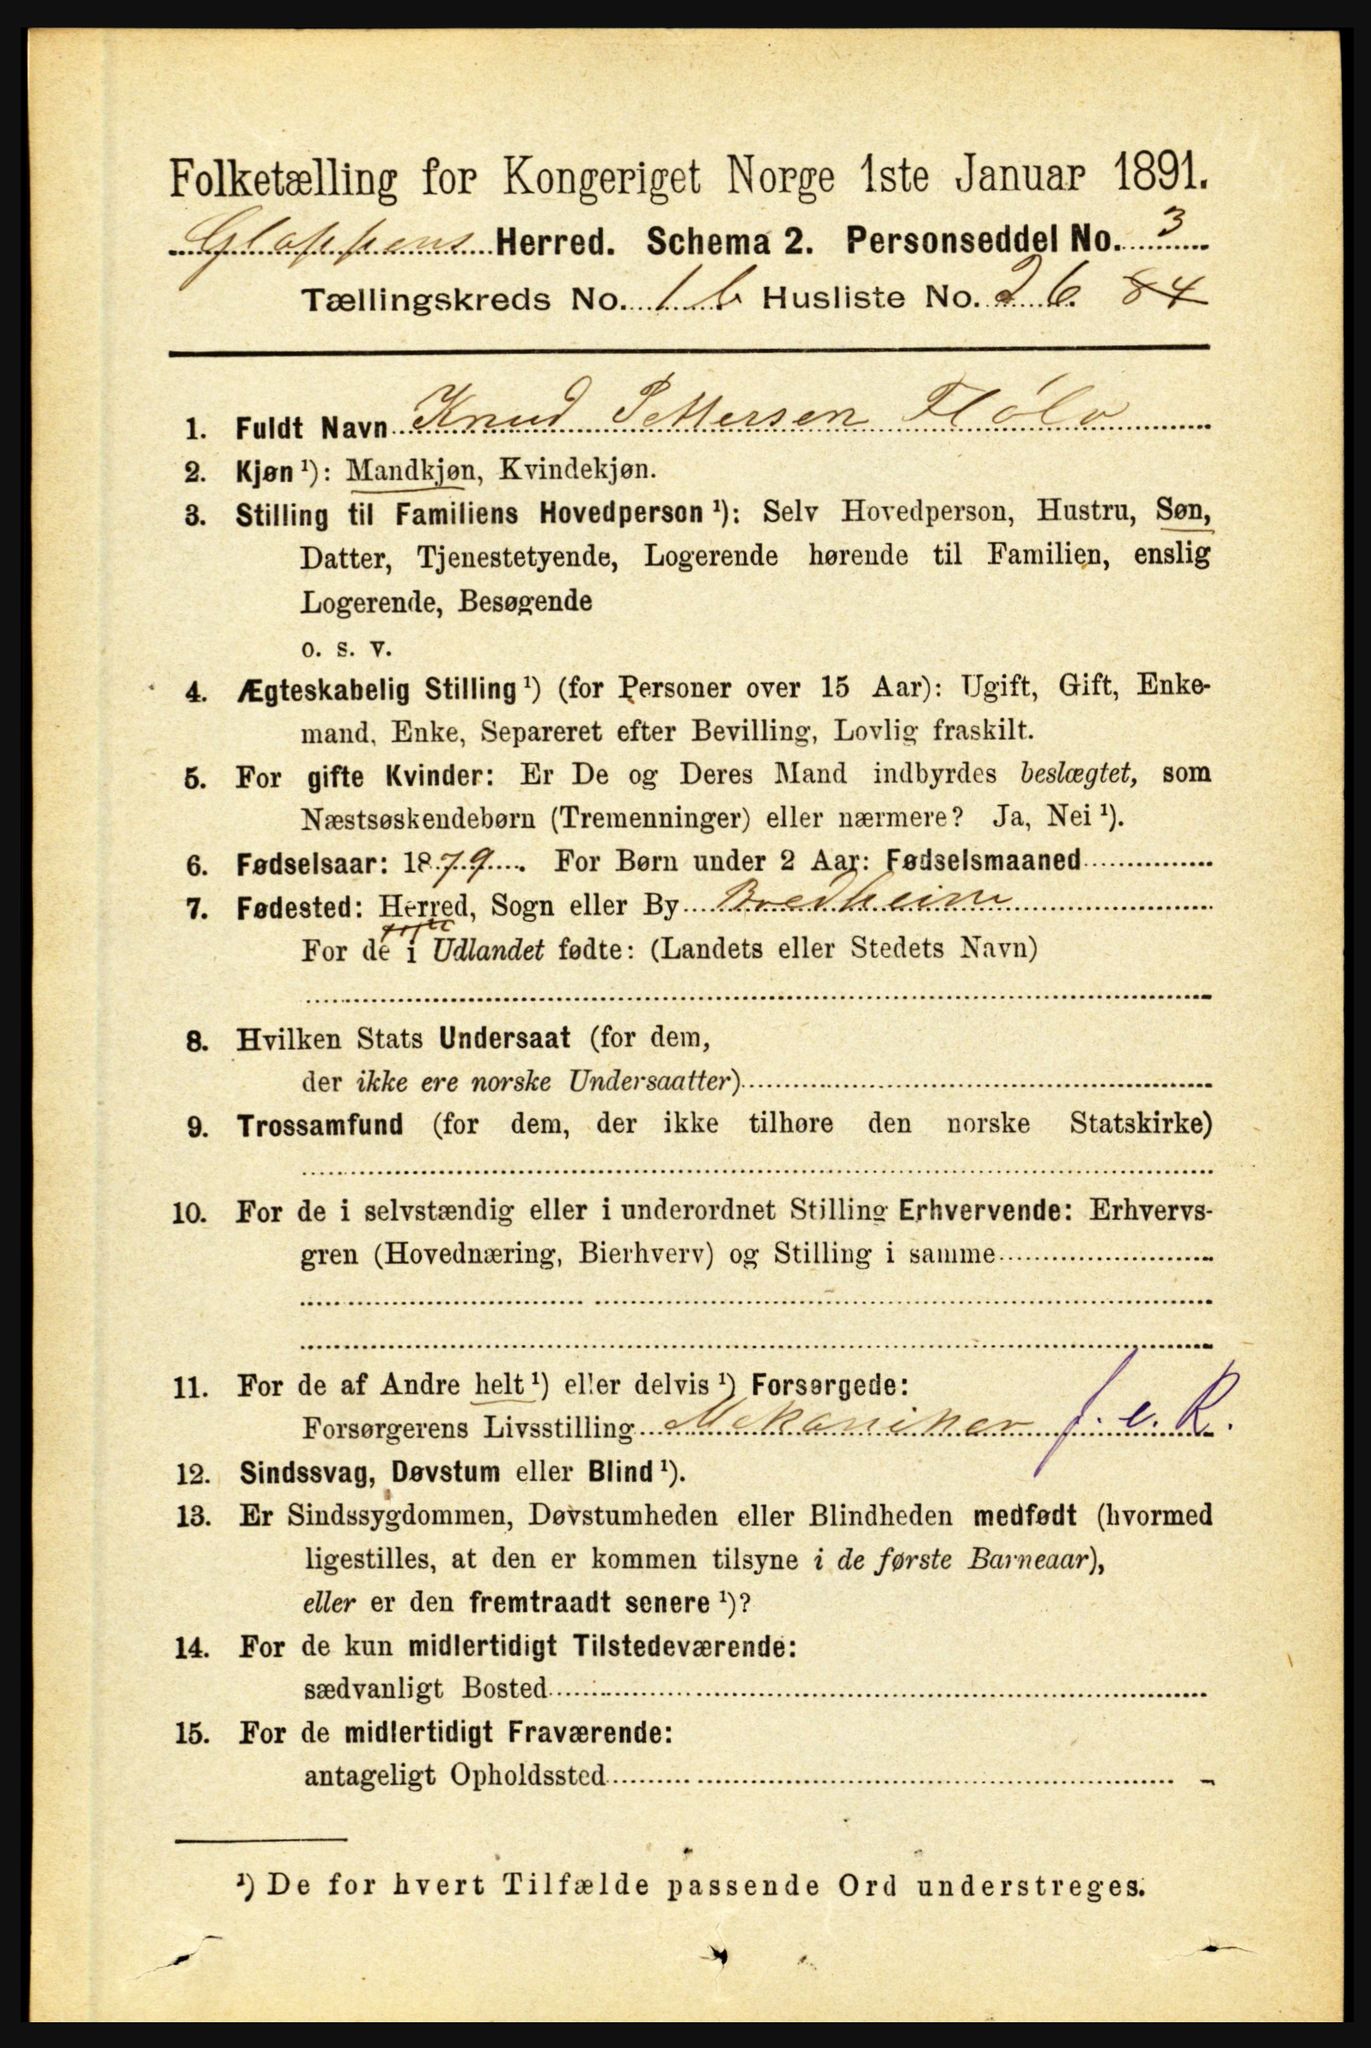 Folketælling for Kongeriget Norge 1ste Januar 1891.
Gloppens Herred. Schema 2. Personseddel No. 3
Tællingskreds No. 1 b Husliste No. 26 84
1. Fuldt Navn Knud Pettersen Flølo
2. Kjøn ¹): Mandkjøn, Kvindekjøn.
3. Stilling til Familiens Hovedperson ¹): Selv Hovedperson, Hustru, Søn,
Datter, Tjenestetyende, Logerende hørende til Familien, enslig
Logerende, Besøgende
o. s. v.
4. Ægteskabelig Stilling ¹) (for Personer over 15 Aar): Ugift, Gift, Enke-
mand, Enke, Separeret efter Bevilling, Lovlig fraskilt.
5. For gifte Kvinder: Er De og Deres Mand indbyrdes beslægtet, som
Næstsøskendebørn (Tremenninger) eller nærmere? Ja, Nei ¹).
6. Fødselsaar: 1879. For Børn under 2 Aar: Fødselsmaaned
7. Fødested: Herred, Sogn eller By Bredheim
For de i Udlandet fødte: (Landets eller Stedets Navn)
8. Hvilken Stats Undersaat (for dem,
der ikke ere norske Undersaatter)
9. Trossamfund (for dem, der ikke tilhøre den norske Statskirke)
10. For de i selvstændig eller i underordnet Stilling Erhvervende: Erhvervs-
gren (Hovednæring, Bierhverv) og Stilling i samme
11. For de af Andre helt ¹) eller delvis ¹) Forsørgede:
Forsørgerens Livsstilling Mekaniker f. e. R.
12. Sindssvag, Døvstum eller Blind ¹).
13. Er Sindssygdommen, Døvstumheden eller Blindheden medfødt (hvormed
ligestilles, at den er kommen tilsyne i de første Barneaar),
eller er den fremtraadt senere ¹)?
14. For de kun midlertidigt Tilstedeværende:
sædvanligt Bosted
15. For de midlertidigt Fraværende:
antageligt Opholdssted
¹) De for hvert Tilfælde passende Ord understreges.